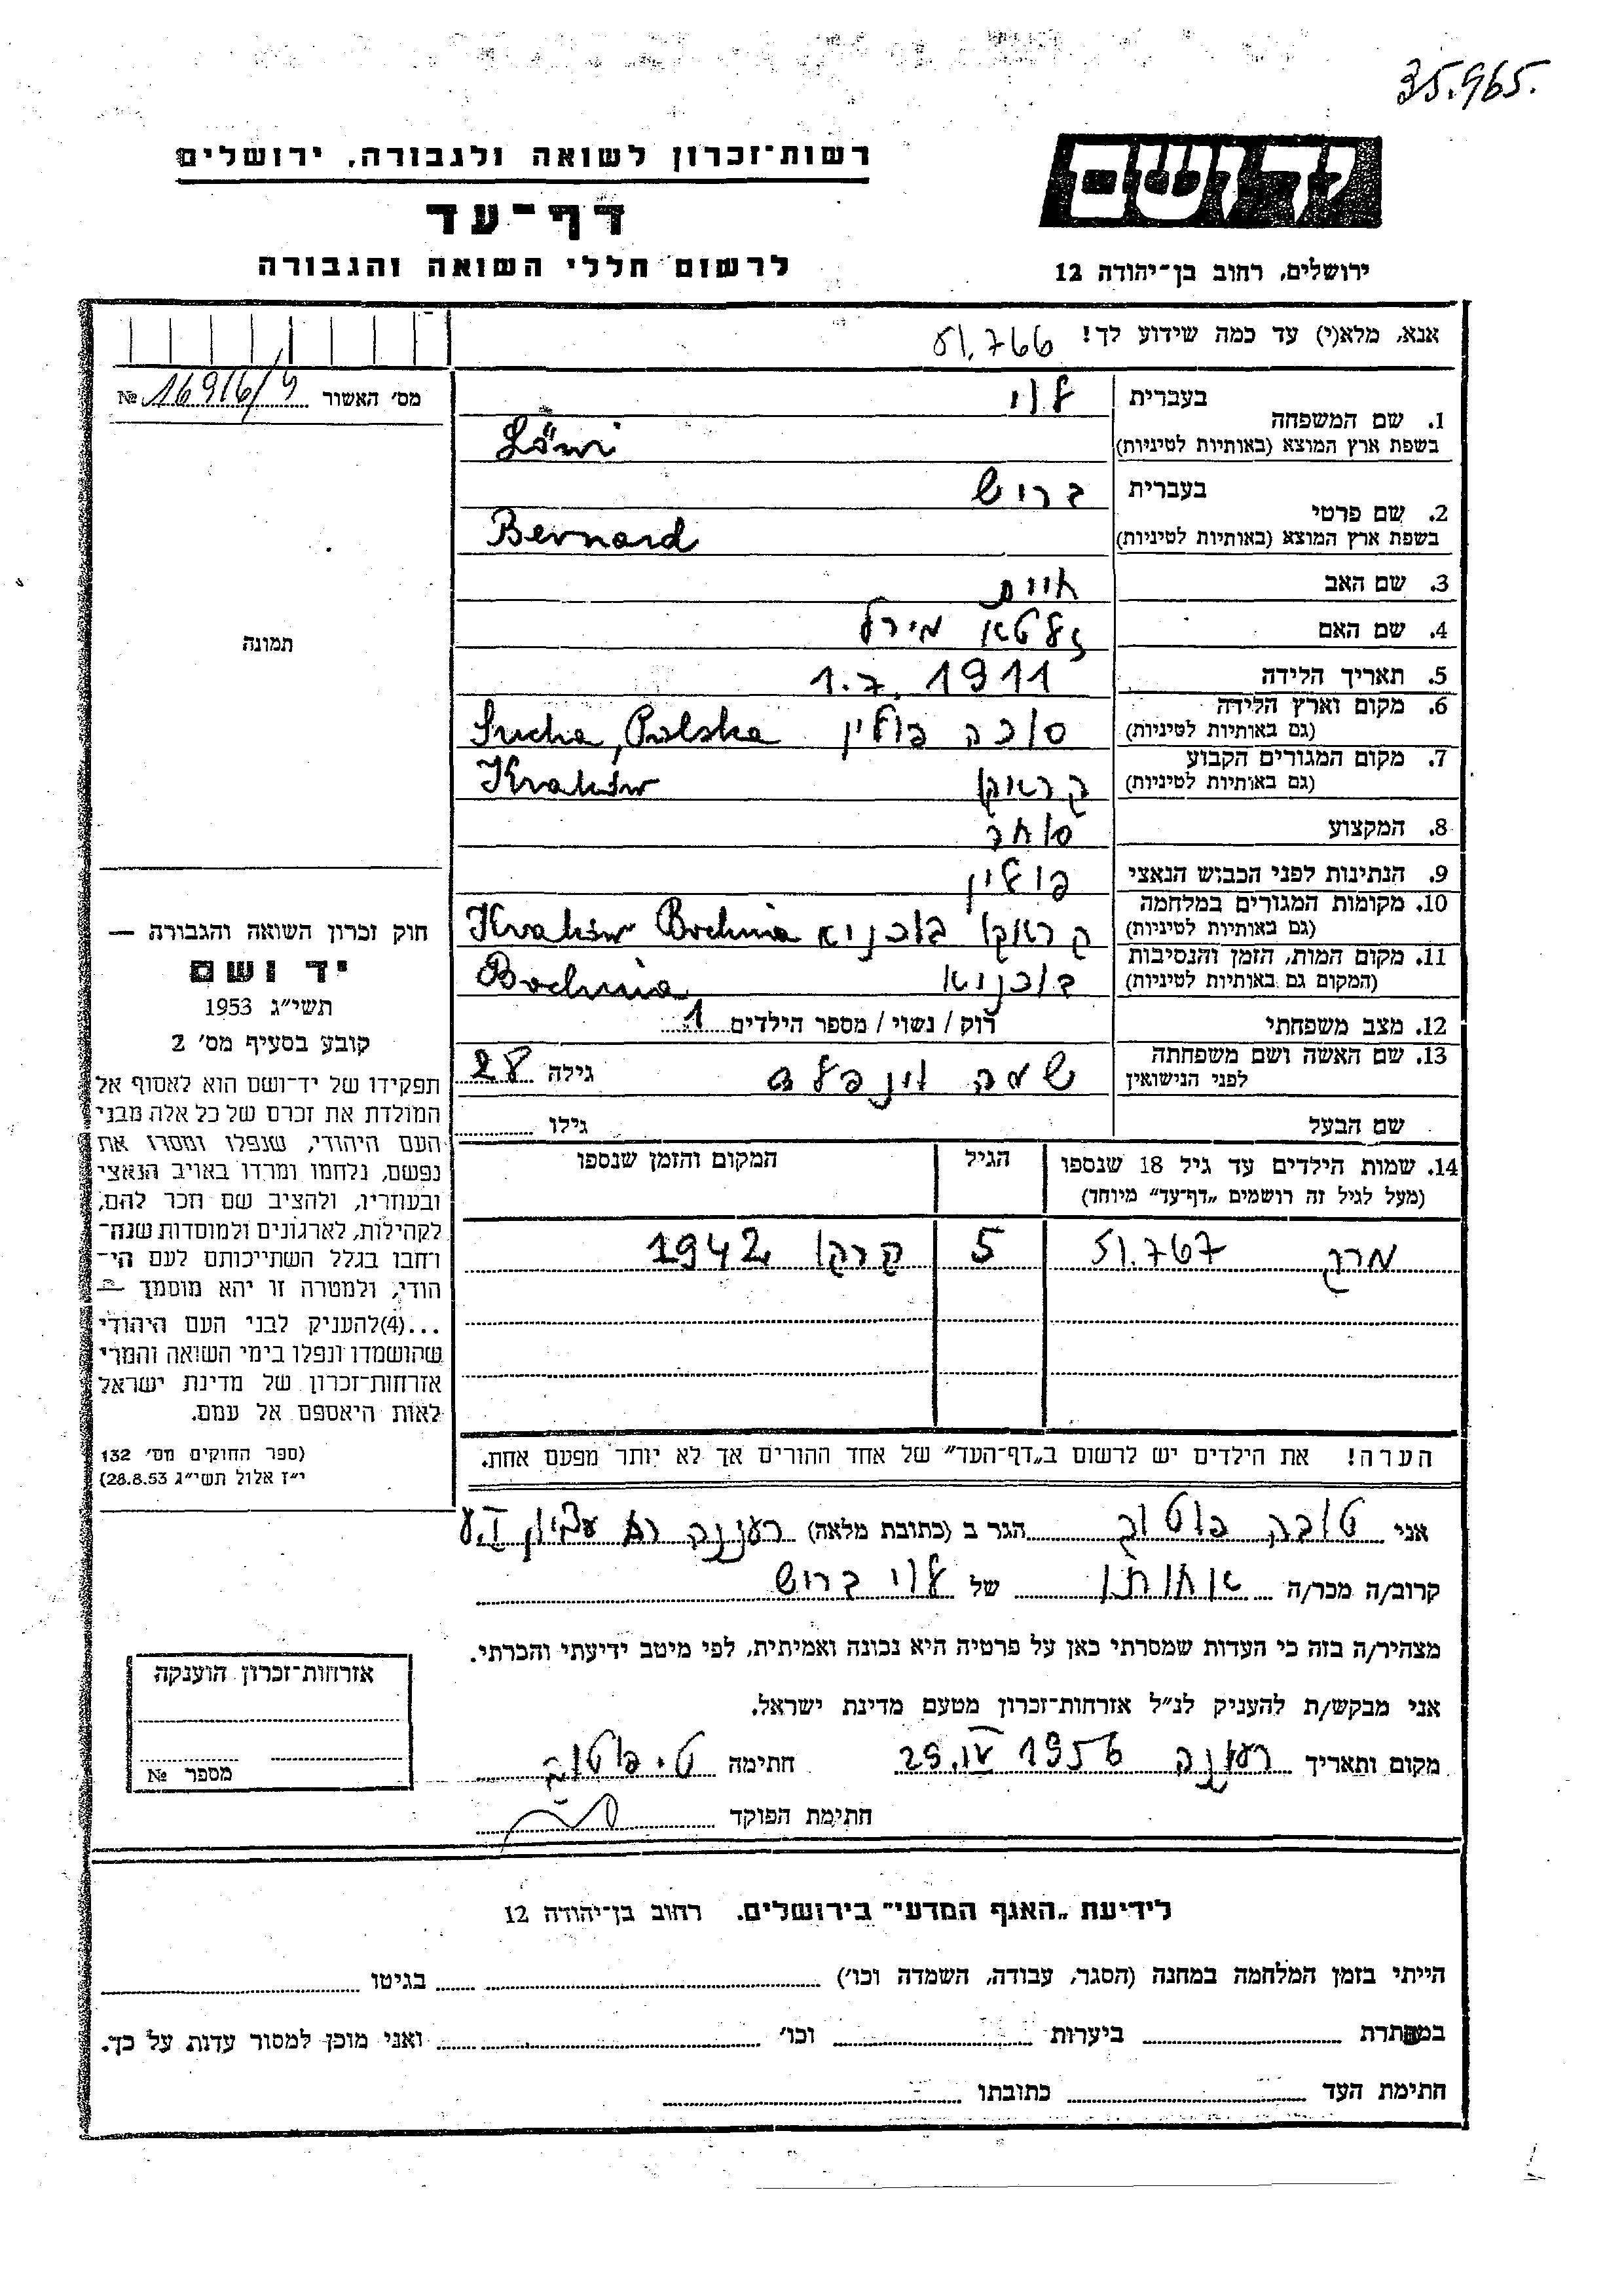 35.965.
יד ושם
רשות־זכרון לשואה ולגבורה, ירושלים
דף־עד
לרשום חללי השואה והגבורה
ירושלים, רחוב בן־יהודה 12
אנא, מלא(י) עד כמה שידוע לך! 51.766
מס׳ האשור 16916/9 №
1. שם המשפחה
בעברית לוי
בשפת ארץ המוצא (באותיות לטיניות) Löwi
2. שם פרטי
בעברית ברוש
בשפת ארץ המוצא (באותיות לטיניות) Bernard
3. שם האב חיים
4. שם האם זלטא מירל
5. תאריך הלידה 1.7.1911
6. מקום וארץ הלידה
(גם באותיות לטיניות) סוכה פולין Sucha, Polska
7. מקום המגורים הקבוע
(גם באותיות לטיניות) קראקו Kraków
8. המקצוע סוחר
9. הנתינות לפני הכבוש הנאצי פולין
10. מקומות המגורים במלחמה
(גם באותיות לטיניות) קראקו בוכניא Kraków Bochnia
11. מקום המות, הזמן והנסיבות
(המקום גם באותיות לטיניות) בוכניא Bochnia
12. מצב משפחתי רוק / נשוי / מספר הילדים 1
13. שם האשה ושם משפחתה
לפני הנישואין גילה 28
שם הבעל גילו
14. שמות הילדים עד גיל 18 שנספו
(מעל לגיל זה רושמים „דף־עד” מיוחד)
הגיל
המקום והזמן שנספו
מרק 51.767 5 קרקו 1942
הערה! את הילדים יש לרשום ב„דף־העד” של אחד ההורים אך לא יותר מפעם אחת.
תמונה
חוק זכרון השואה והגבורה —
יד ושם
תשי״ג 1953
קובע בסעיף מס׳ 2
תפקידו של יד־ושם הוא לאסוף אל
המולדת את זכרם של כל אלה מבני
העם היהודי, שנפלו ומסרו את
נפשם, נלחמו ומרדו באויב הנאצי
ובעוזריו, ולהציב שם וזכר להם,
לקהילות, לארגונים ולמוסדות שנח־
רחבו בגלל השתייכותם לעם הי־
הודי, ולמטרה זו יהא מוסמך —
...(4)להעניק לבני העם היהודי
שהושמדו ונפלו בימי השואה והמרי
אזרחות־זכרון של מדינת ישראל
לאות היאספם אל עמם.
(ספר החוקים מס׳ 132
י״ז אלול תשי״ג 28.8.53)
אני טובה הגר ב (כתובת מלאה) רעננה
קרוב/ה מכר/ה אחותו של לוי ברוש
מצהיר/ה בזה כי העדות שמסרתי כאן על פרטיה היא נכונה ואמיתית, לפי מיטב ידיעתי והכרתי.
אני מבקש/ת להעניק לנ״ל אזרחות־זכרון מטעם מדינת ישראל.
מקום ותאריך רעננה 29.IV 1956 חתימה
חתימת הפוקד
אזרחות־זכרון הוענקה
מספר №
לידיעת „האגף המדעי” בירושלים. רחוב בן־יהודה 12
הייתי בזמן המלחמה במחנה (הסגר, עבודה, השמדה וכו׳) בגיטו
במחתרת ביערות וכו׳ ואני מוכן למסור עדות על כך.
חתימת העד כתובתו